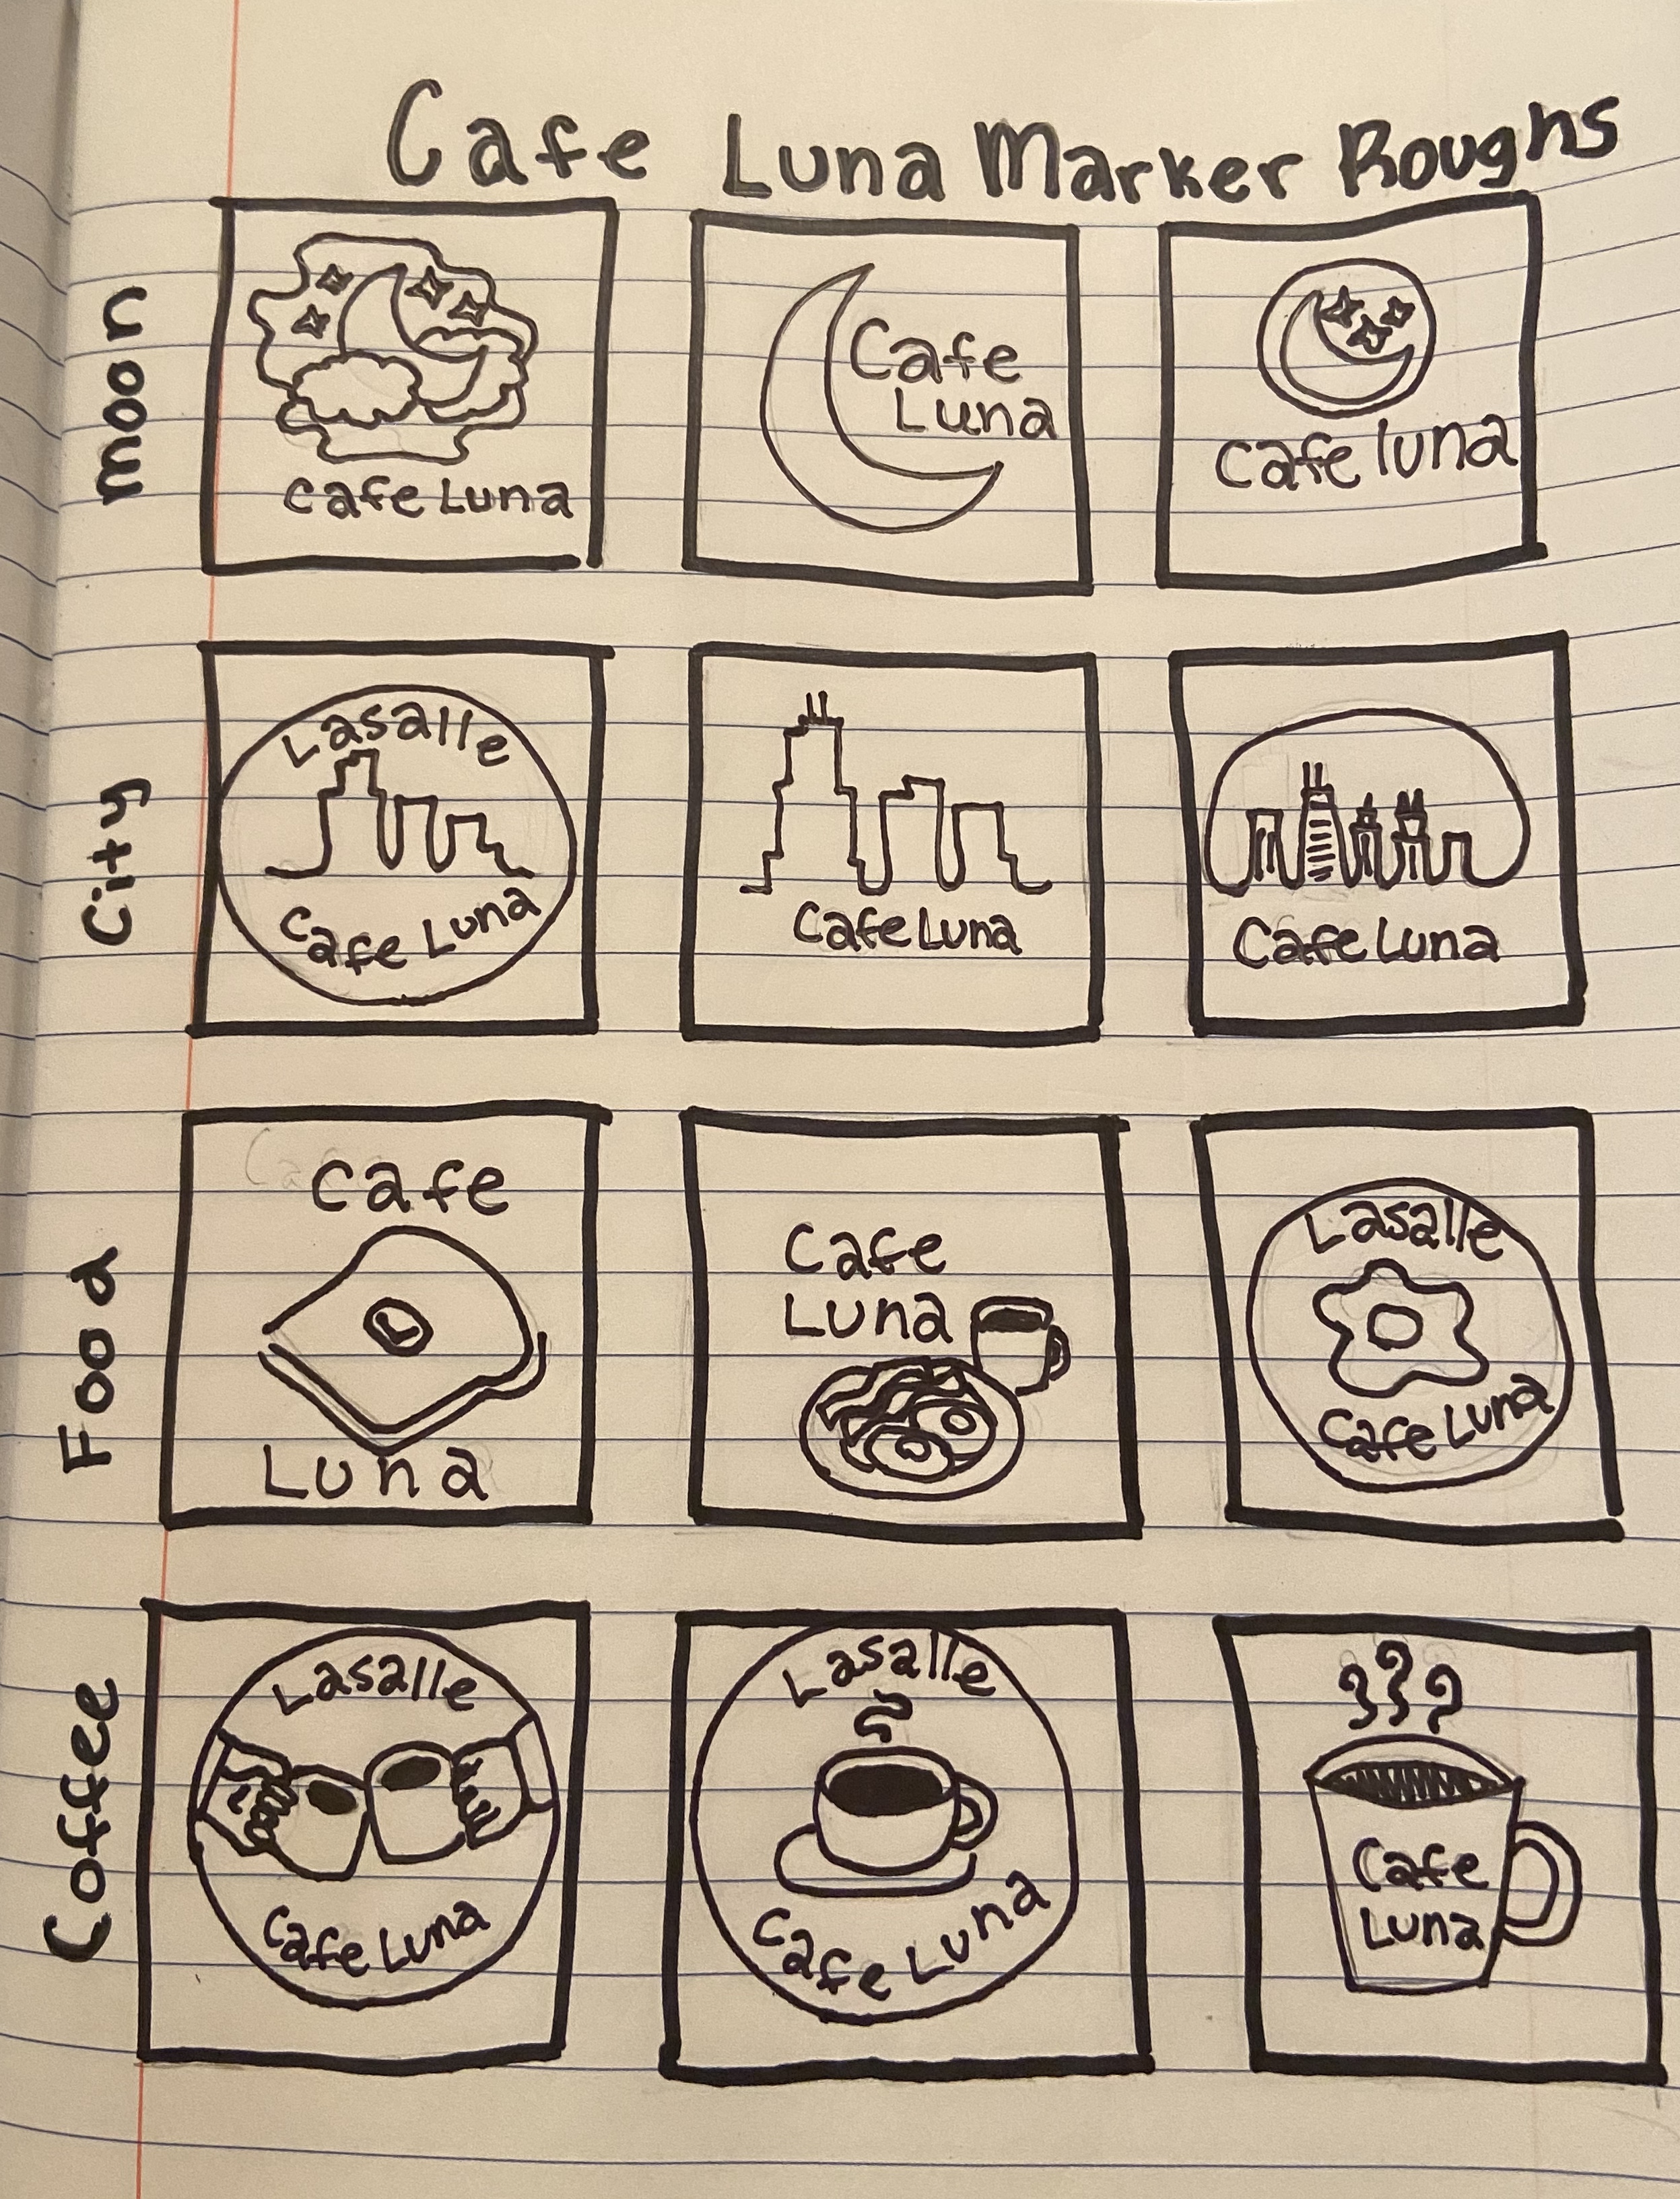 Cafe Luna Marker Roughs
moon
Cafe Luna
Cafe
Luna
Cafe luna
City
Lasalle
Cafe Luna
Cafe Luna
Cafe Luna
Food
Cafe
L
Luna
Cafe
Luna
Lasalle
Cafe Luna
Coffee
Lasalle
Cafe Luna
Lasalle
Cafe Luna
Cafe
Luna